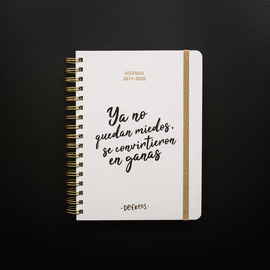 AGENDA
2019-2020
Ya no
quedan miedos,
se convirtieron
en ganas
·DEFREDS·